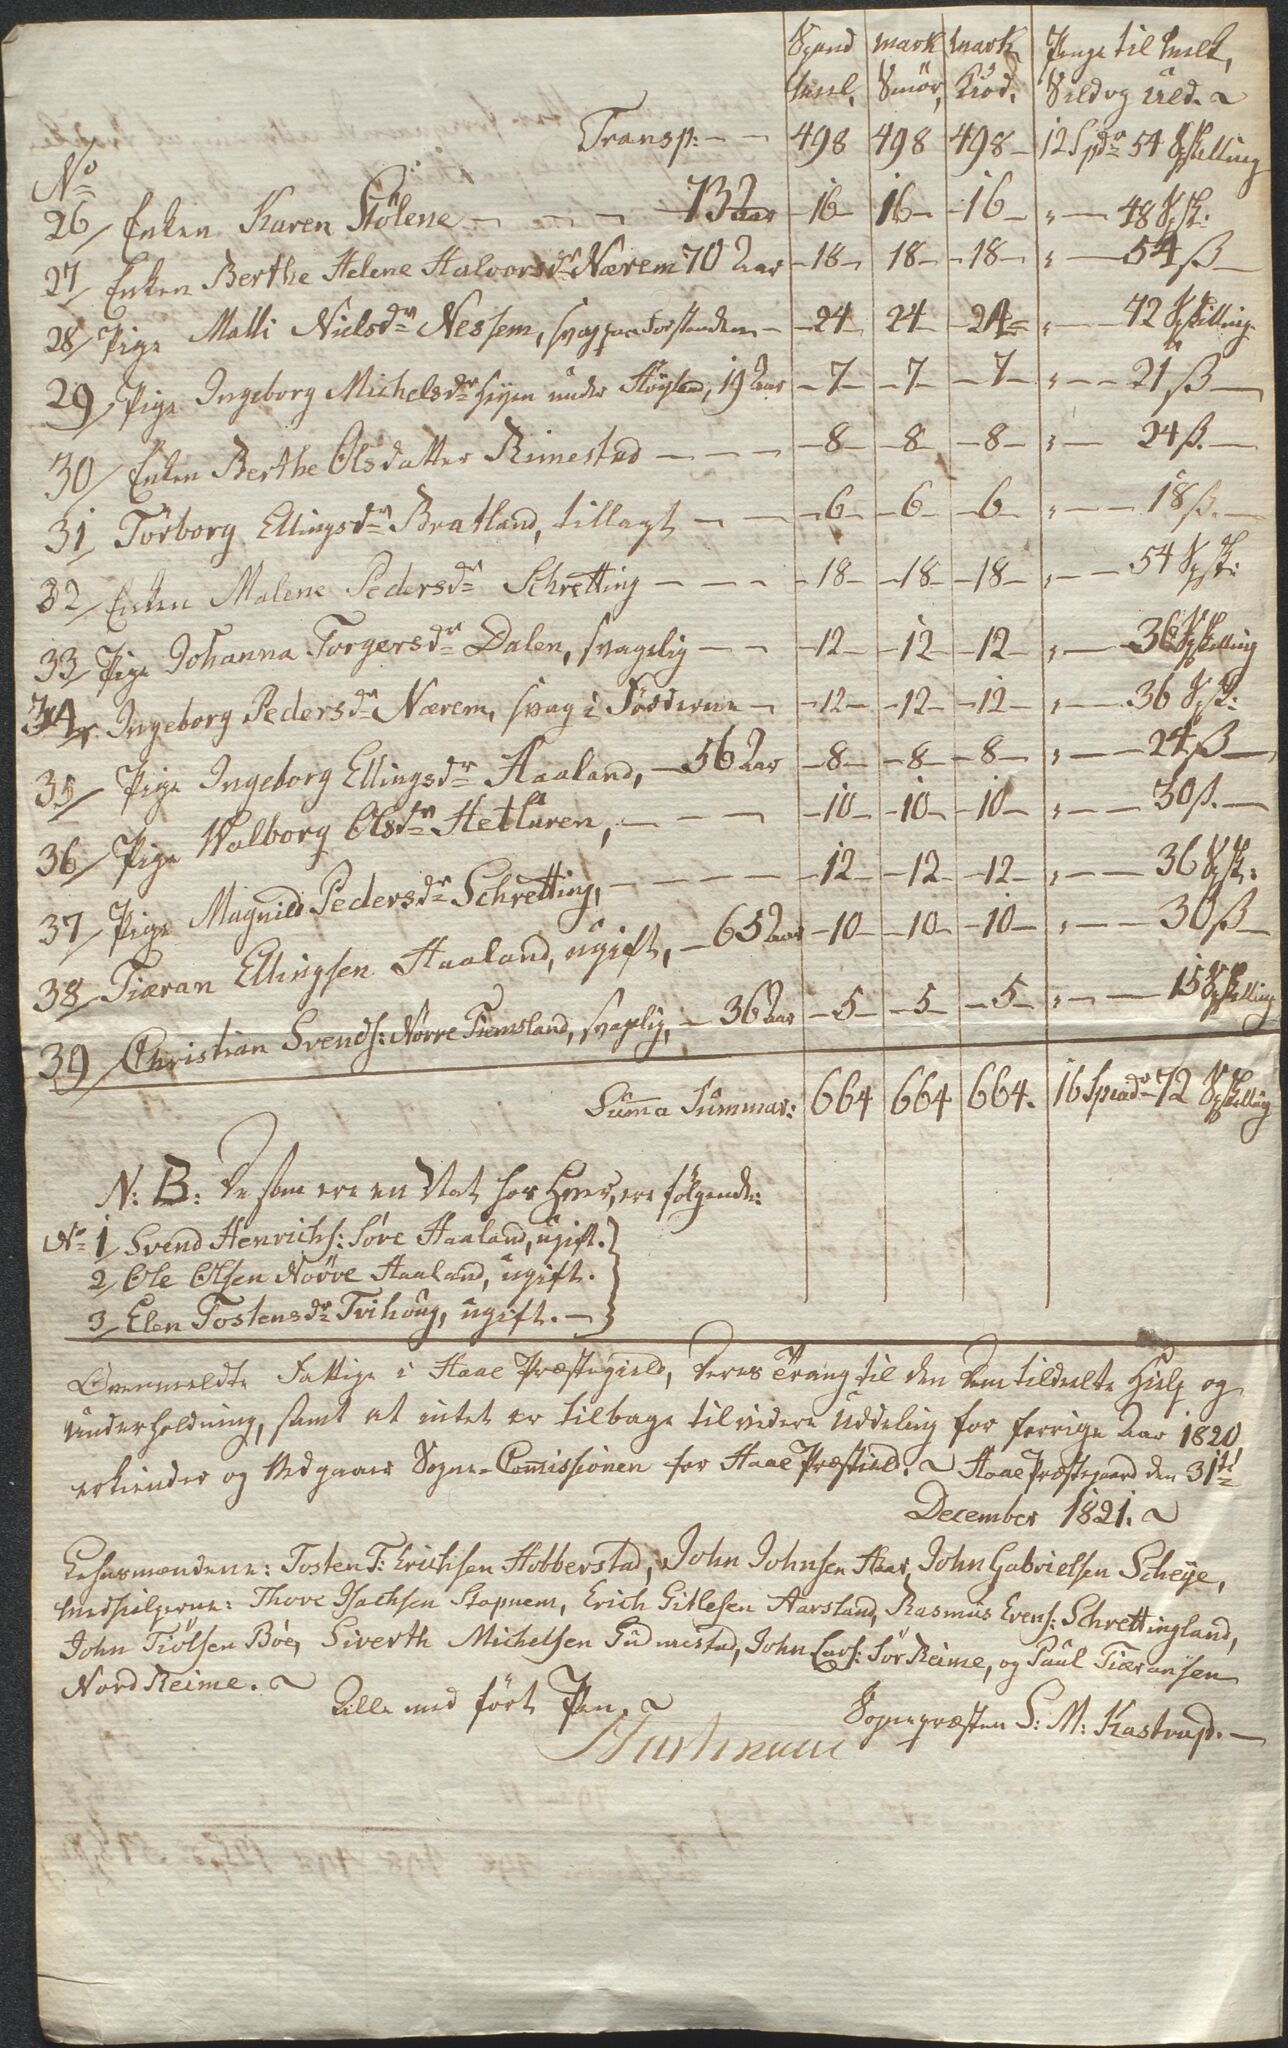 Spand mark mark Penge til Melk,
Meel, Smör, Kiöd, Sild og Uld. ~
Transp: — — 498 498 498 — 12 Spdr 54 Skilling
No
26/ Enken Karen Stölene — — — — 73 Aar — 16 — 16 — 16 — " — 48 Sk:
27/ Enken Berthe Helene Halvorsdr Nærem 70 Aar — 18 — 18 — 18 — " — 54 ß —
28/ Pige Malli Nielsdr Nessem, svag paa Forstanden — 24 — 24 — 24 = " — 42 Skilling
29/ Pige Ingeborg Michelsdr under Höyland, 19 Aar — 7 — 7 — 7 — " — 21 ß —
30/ Enken Berthe Olsdatter Rimestad — — — — 8 — 8 — 8 — " — 24 ß. —
31/ Torborg Ellingsdr Bratland, tillagt — — — 6 — 6 — 6 — " — 18 ß. —
32/ Enken Malene Pedersdr Schretting — — — — 18 — 18 — 18 — " — 54 Sk:
33/ Pige Johanna Torgersdr Dalen, svagelig — — — 12 — 12 — 12 — " — 36 Skilling
34/ Ingeborg Pedersdr Nærem, svag i Födderne — — 12 — 12 — 12 — " — 36 Sk:
35/ Pige Ingeborg Ellingsdr Haaland, — 56 Aar — 8 — 8 — 8 — " — 24 ß —
36/ Pige Walborg Olsdr Hetluren, — — — — 10 — 10 — 10 — " — 30 ß. —
37/ Pige Magnild Pedersdr Schretting, — — — — 12 — 12 — 12 — " — 36 Sk:
38/ Tiæran Ellingsen Haaland, ugift, — 65 Aar — 10 — 10 — 10 — " — 30 ß —
39/ Christian Svends: Norre Tiemsland, svagelig, — 36 Aar — 5 — 5 — 5 — " — 15 Skilling
Suma Summar: 664 664 664. 16 Specdr 72 Skilling
N: B: De som ere en Nat hos Hver, ere følgende:
No 1/ Svend Henrichs: Söre Haaland, ugift.
2/ Ole Olsen Norre Haaland, ugift.
3/ Elen Tostensdr Tvihoug, ugift. —
Ovenmeldte Fattige i Haae Præstegield, deres Trang til den dem tildeelte Hielp og
underholdning, samt at intet er tilbage til videre Uddeling for forrige Aar 1820,
erkiender og vedgaaer Sogne-Commissionen for Haae Præstield. ~ Haae Præstegaard den 31te
December 1821. ~
Lehnsmændene: Tosten T: Erichsen Hobberstad, John Johnsen Haar, John Gabrielsen Scheye,
Medhielperne: Thore Isachsen Stapnem, Erich Gitlesen Aarsland, Rasmus Evens: Schrettingland,
John Tiölsen Böe, Siverth Michelsen Gudmestad, John Lars: Sör Reime, og Paul Tiæransen
Nord Reime. ~
Alle med fört Pen. ~ Sognepræsten S: M: Kastrup. —